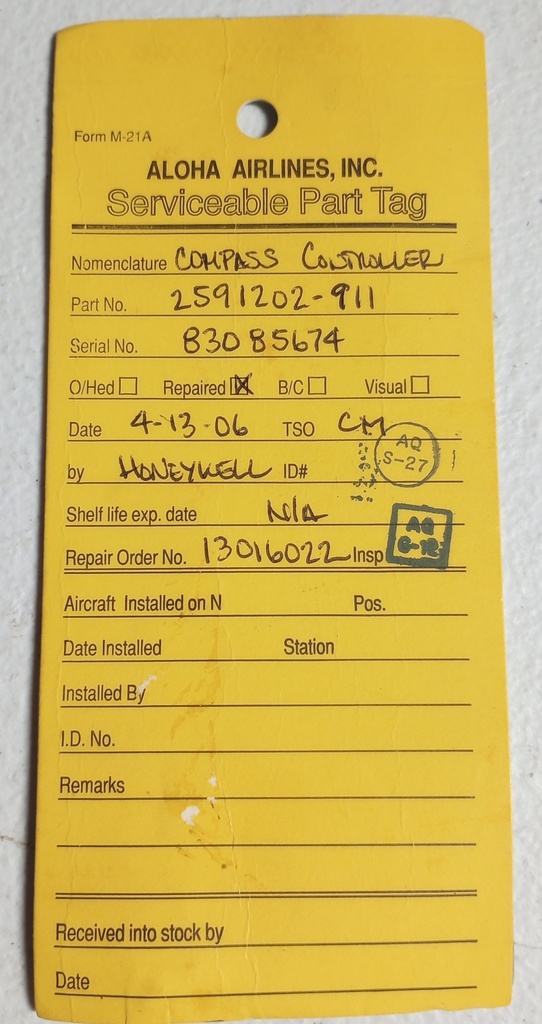 Form M-21A
ALOHA AIRLINES, INC.
Serviceable Part Tag
Nomenclature COMPASS CONTROLLER
Part No. 2591202-911
Serial No. 83085674
O/Hed Repaired X B/C Visual
Date 4-13-06 TSO CM
AQ
S-27
by HONEYWELL ID#
Shelf life exp. date N/A
AQ
Repair Order No. 13016022 Insp
Aircraft Installed on N Pos.
Date Installed Station
Installed By
I.D. No.
Remarks
Received into stock by
Date